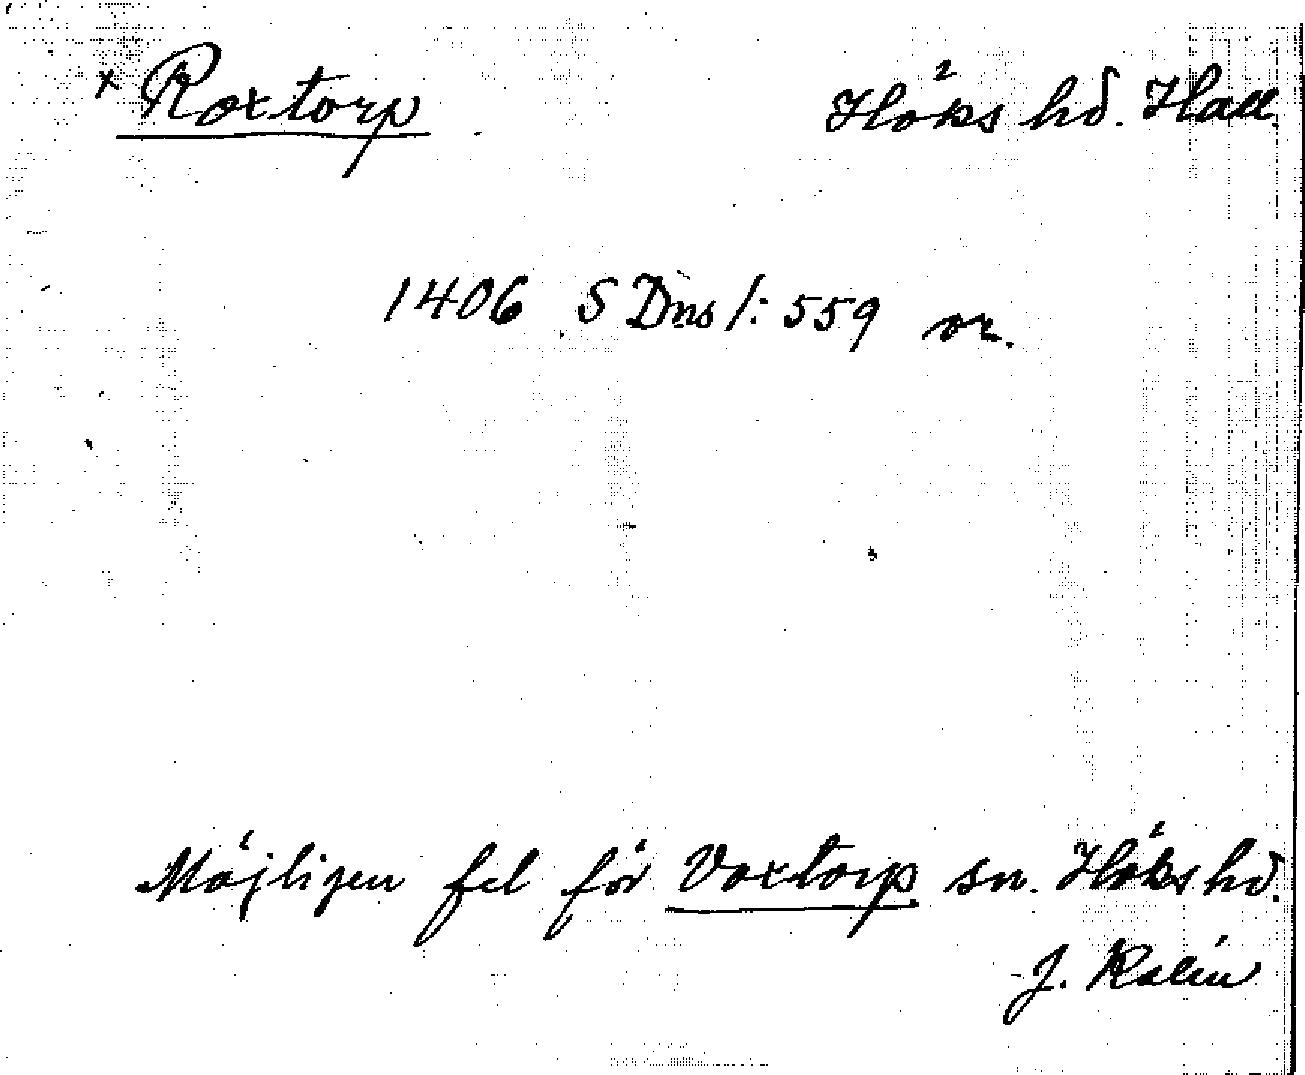 × Roxtorp Höks hd. Hall.
1406 SDns 1: 559 or.
Möjligen fel för Voxtorp sn. Höks hd.
J. Kalén